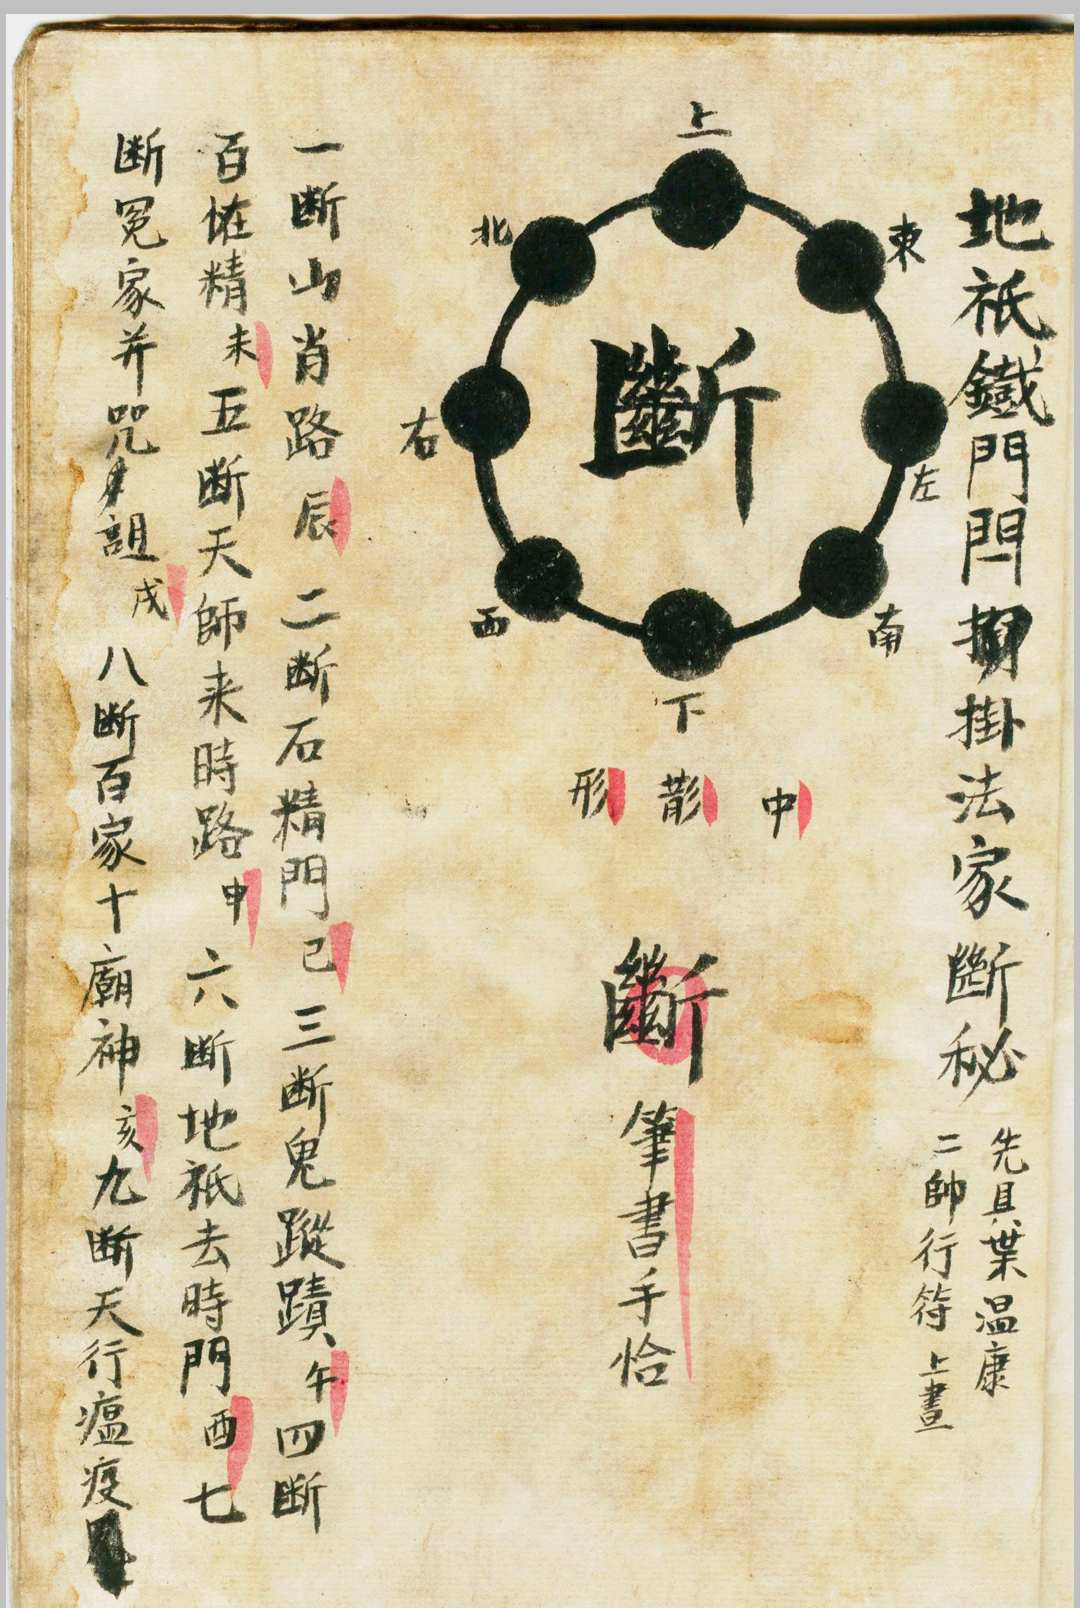 地祇鐵門閂掛法家斷秘
先具葉温康
二帥行符上晝
上
東
左
南
下
西
右
北
斷
中
形
斷
筆書手恰
一断山肖路辰二断石精門己三断鬼蹤蹟午四断
百恠精未五断天師来時路申六断地祇去時門酉七
断冤家并咒詛戌八断百家十廟神亥九断天行瘟疫